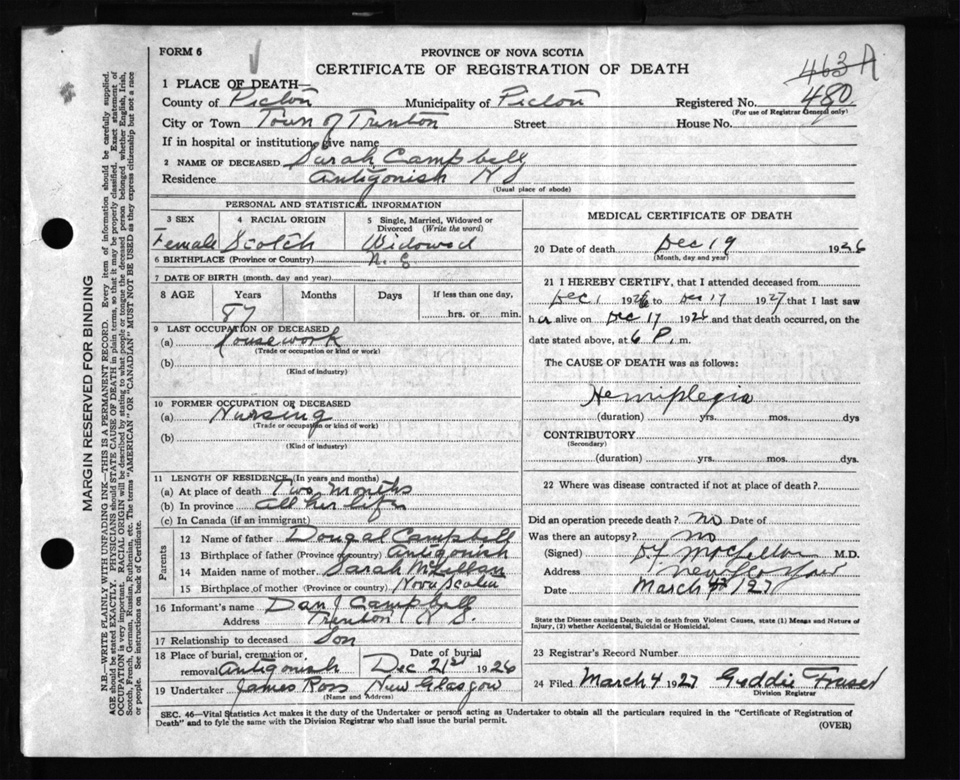 FORM 6
PROVINCE OF NOVA SCOTIA
CERTIFICATE OF REGISTRATION OF DEATH
463 A
1 PLACE OF DEATH—
County of Pictou Municipality of Pictou Registered No. 480
(For use of Registrar General only)
City or Town Town of Trenton Street House No.
If in hospital or institution, give name
2 NAME OF DECEASED Sarah Campbell
Residence Antigonish N S
(Usual place of abode)
PERSONAL AND STATISTICAL INFORMATION
3 SEX 4 RACIAL ORIGIN 5 Single, Married, Widowed or Divorced (Write the word)
Female Scotch Widowed
6 BIRTHPLACE (Province or Country) N. S
7 DATE OF BIRTH (month, day and year)
8 AGE Years Months Days If less than one day,
87 hrs. or min.
9 LAST OCCUPATION OF DECEASED
(a) Housework
(Trade or occupation or kind or work)
(b)
(Kind of industry)
10 FORMER OCCUPATION OF DECEASED
(a) Nursing
(Trade or occupation or kind of work)
(b)
(Kind of industry)
11 LENGTH OF RESIDENCE (In years and months)
(a) At place of death Two months
(b) In province all her life
(c) In Canada (if an immigrant)
Parents
12 Name of father Dougal Campbell
13 Birthplace of father (Province or country) Antigonish
14 Maiden name of mother Sarah McLellan
15 Birthplace of mother (Province or country) Nova Scotia
16 Informant's name Dan J Campbell
Address Trenton N. S.
17 Relationship to deceased Son
18 Place of burial, cremation or removal Antigonish Date of burial Dec 21st 1926
19 Undertaker James Ross New Glasgow
(Name and Address)
MEDICAL CERTIFICATE OF DEATH
20 Date of death Dec 19 1926
(Month, day and year)
21 I HEREBY CERTIFY, that I attended deceased from
Dec 1 1926 to Dec 17 1927 that I last saw
her alive on Dec 17 1926 and that death occurred, on the
date stated above, at 6 P.m.
The CAUSE OF DEATH was as follows:
Hemiplegia
(duration) yrs. mos. dys
CONTRIBUTORY
(Secondary)
(duration) yrs. mos. dys.
22 Where was disease contracted if not at place of death?
Did an operation precede death? no Date of
Was there an autopsy? no
(Signed) M.D.
Address New Glasgow
Date March 1927
State the Disease causing Death, or in death from Violent Causes, state (1) Means and Nature of Injury, (2) whether Accidental, Suicidal or Homicidal.
23 Registrar's Record Number
24 Filed March 4 1927 Fraser
Division Registrar
SEC. 46—Vital Statistics Act makes it the duty of the Undertaker or person acting as Undertaker to obtain all the particulars required in the "Certificate of Registration of
Death" and to fyle the same with the Division Registrar who shall issue the burial permit.
(OVER)
MARGIN RESERVED FOR BINDING
N.B.—WRITE PLAINLY WITH UNFADING INK—THIS IS A PERMANENT RECORD. Every item of information should be carefully supplied.
AGE should be stated EXACTLY. PHYSICIANS should STATE CAUSE OF DEATH in plain terms, so that it may be properly classified. Exact statement of
OCCUPATION is very important. RACIAL ORIGIN will be described by stating to what people or tongue the deceased person belonged whether English, Irish,
Scotch, French, German, Russian, Ruthenian, etc. The terms "AMERICAN" OR "CANADIAN" MUST NOT BE USED as they express citizenship but not a race
or people. See instructions on back of Certificate.